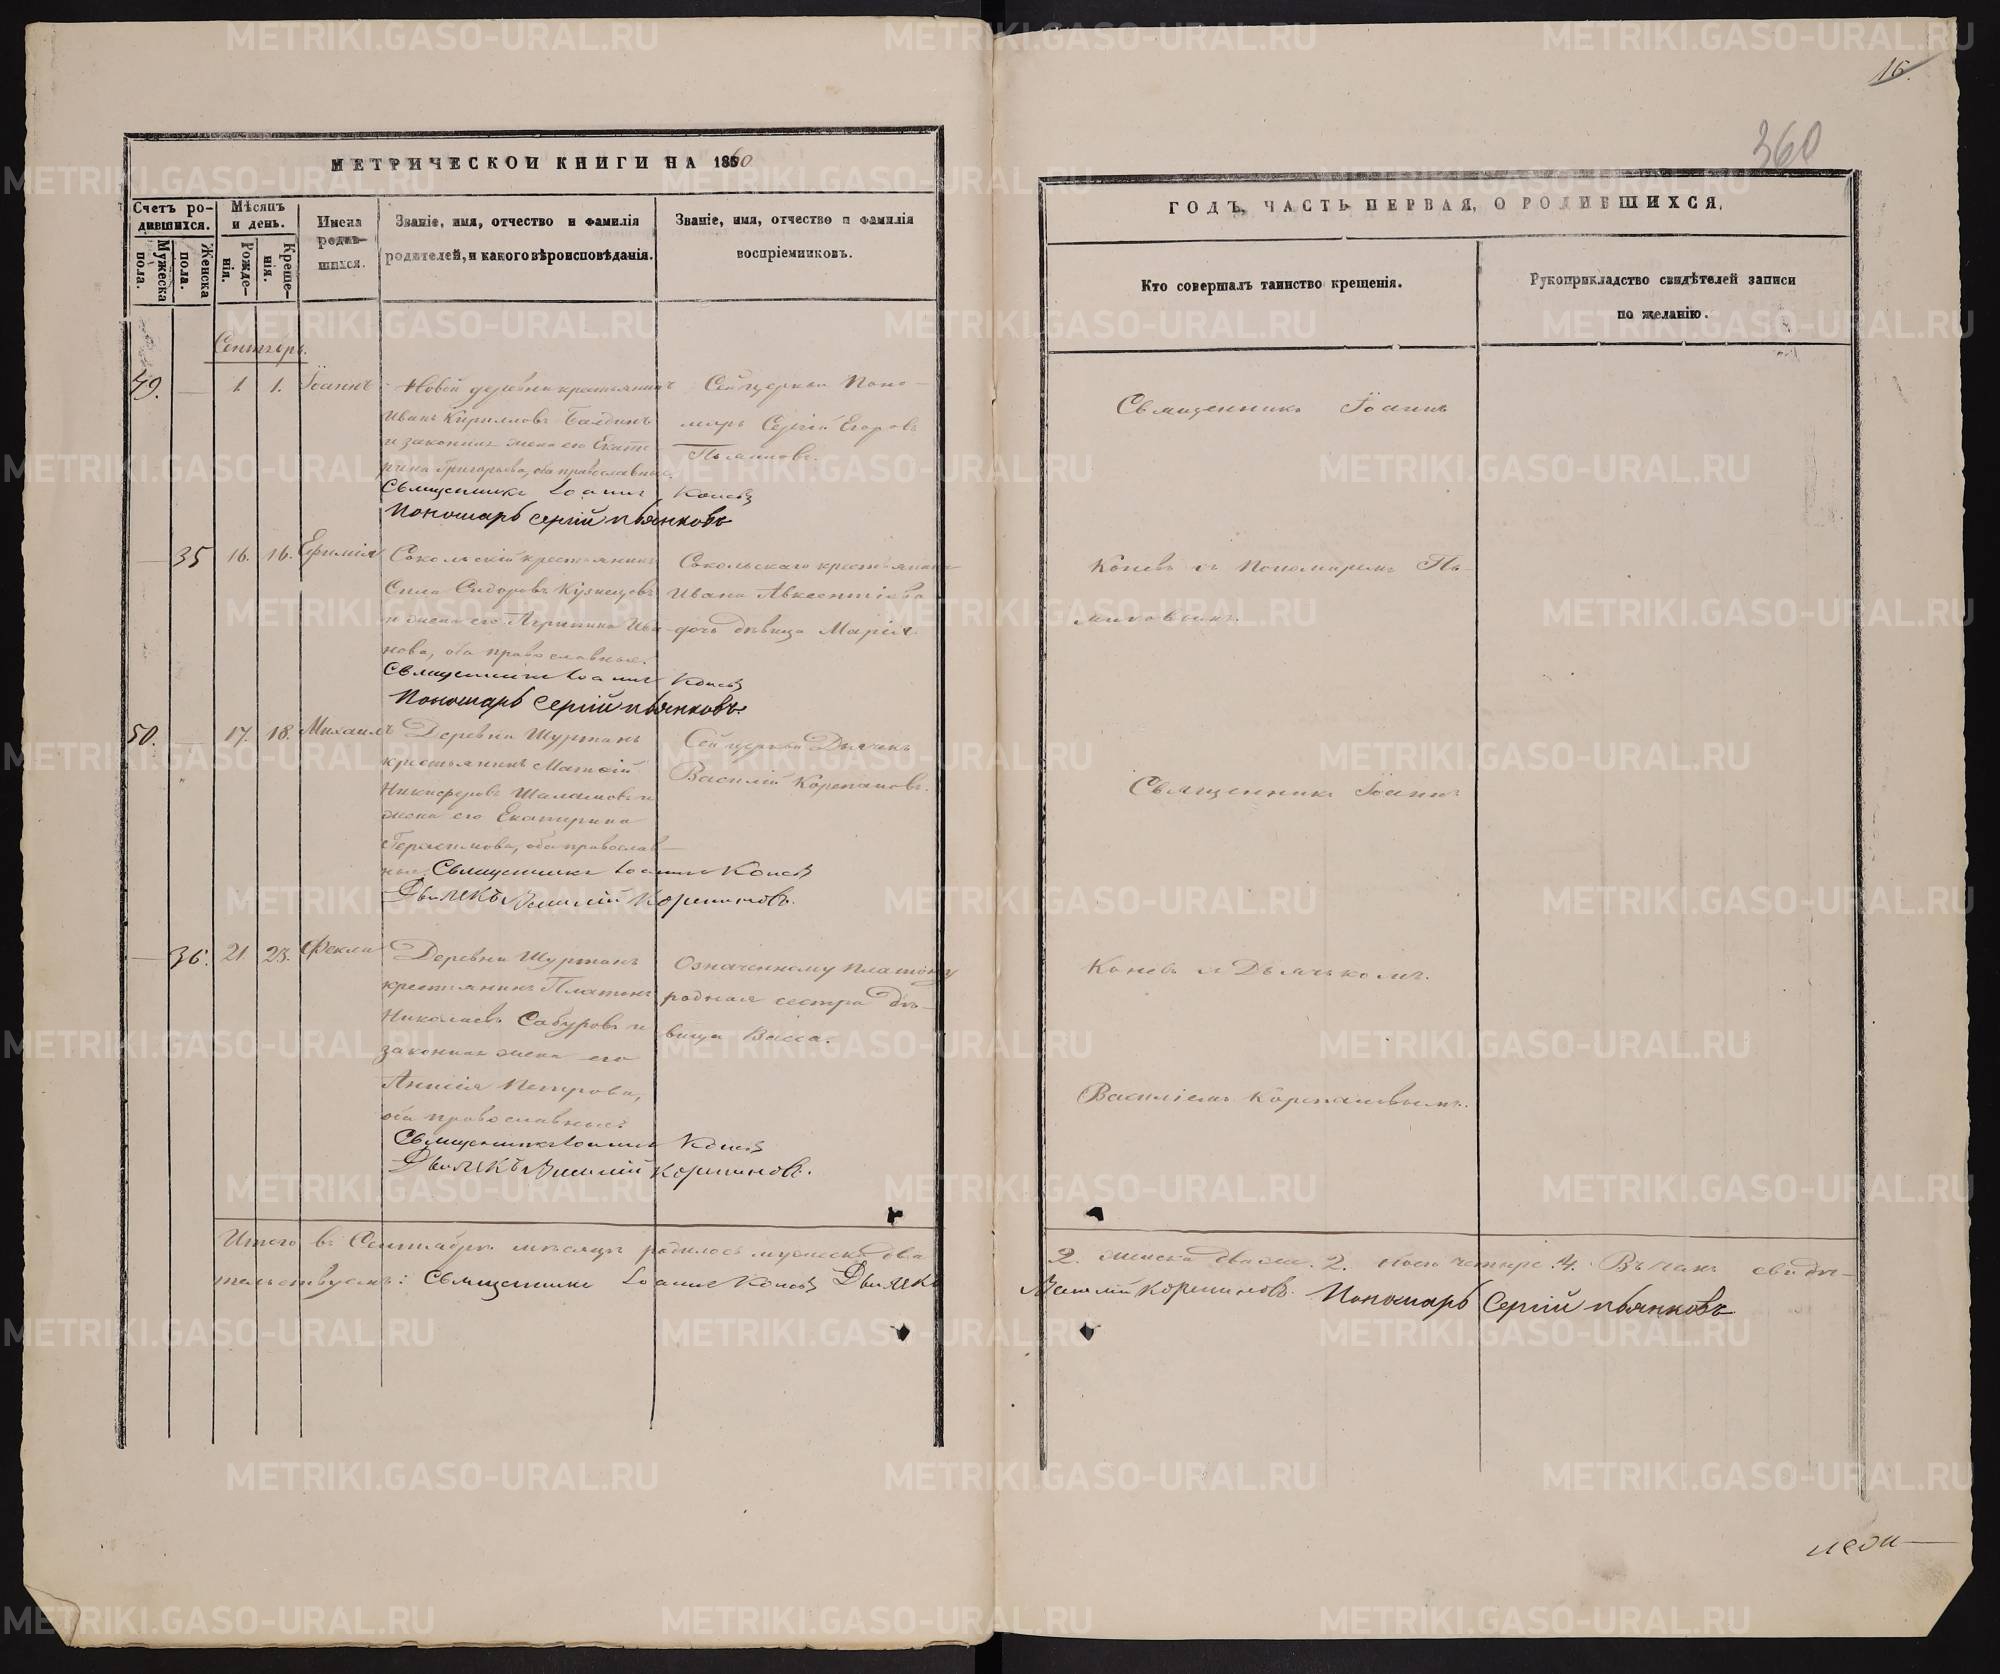 16.
360
МЕТРИЧЕСКОЙ КНИГИ НА 1860
Счетъ ро-
дившихся.
Мужеска
пола.
Женска
пола.
Мѣсяцъ
и день.
Рожде-
нія.
Креще-
нія.
Имена
родив-
шихся.
Званіе, имя, отчество и фамилія
родителей, и какого вѣроисповѣданія.
Званіе, имя, отчество и фамилія
воспріемниковъ.
Сентябрь.
49. — 1. 1. Іоаннъ
Новой деревни крестьянинъ
Иванъ Кириловъ
и законная жена его Екате-
рина Григорьева, оба православные.
Сей церкви Поно-
марь Сергій Егоровъ
Пьянковъ.
Священникъ Іоаннъ Коневъ
Пономарь Сергій Пьянковъ
— 35 16. 16. Ефимія
Сокольскій крестьянинъ
Сила Сидоровъ Кузнецовъ
и жена его Агрипина Ива-
нова, оба православные.
Сокольскаго крестьянина
Ивана Авксентіева
дочь дѣвица Марія.
Священникъ Іоаннъ Коневъ
Пономарь Сергій Пьянковъ.
50. — 17. 18. Михаилъ
Деревни Шуртанъ
крестьянинъ Матвій
Никифоровъ Шаламовъ и
жена его Екатерина
Герасимова, оба православ-
ные.
Сей церкви Дьячекъ
Василій Корепановъ.
Священникъ Іоаннъ Коневъ
Дьячекъ Василій Корепановъ.
— 36. 21 23. Фекла
Деревни Шуртанъ
крестьянинъ Платонъ
Николаевъ Сабуровъ и
законная жена его
Анисія Петрова,
оба православные
Означенному Платону
родная сестра дѣ-
вица Васса.
Священникъ Іоаннъ Коневъ
Дьячекъ Василій Корепановъ.
Итого въ Сентябрѣ мѣсяцѣ родилось мужеска два
тельствуемъ: Священникъ Іоаннъ Коневъ Дьячекъ
ГОДЪ, ЧАСТЬ ПЕРВАЯ, О РОДИВШИХСЯ.
Кто совершалъ таинство крещенія.
Рукоприкладство свидѣтелей записи
по желанію.
Священникъ Іоаннъ
Коневъ съ Пономаремъ Пь-
янковымъ.
Священникъ Іоаннъ
Коневъ и Дьячькомъ.
Василіемъ Корепановымъ.
2. женска двѣ 2. обоего четыре. 4. Въ чемъ свидѣ-
Василій Корепановъ. Пономарь Сергій Пьянковъ
METRIKI.GASO-URAL.RU